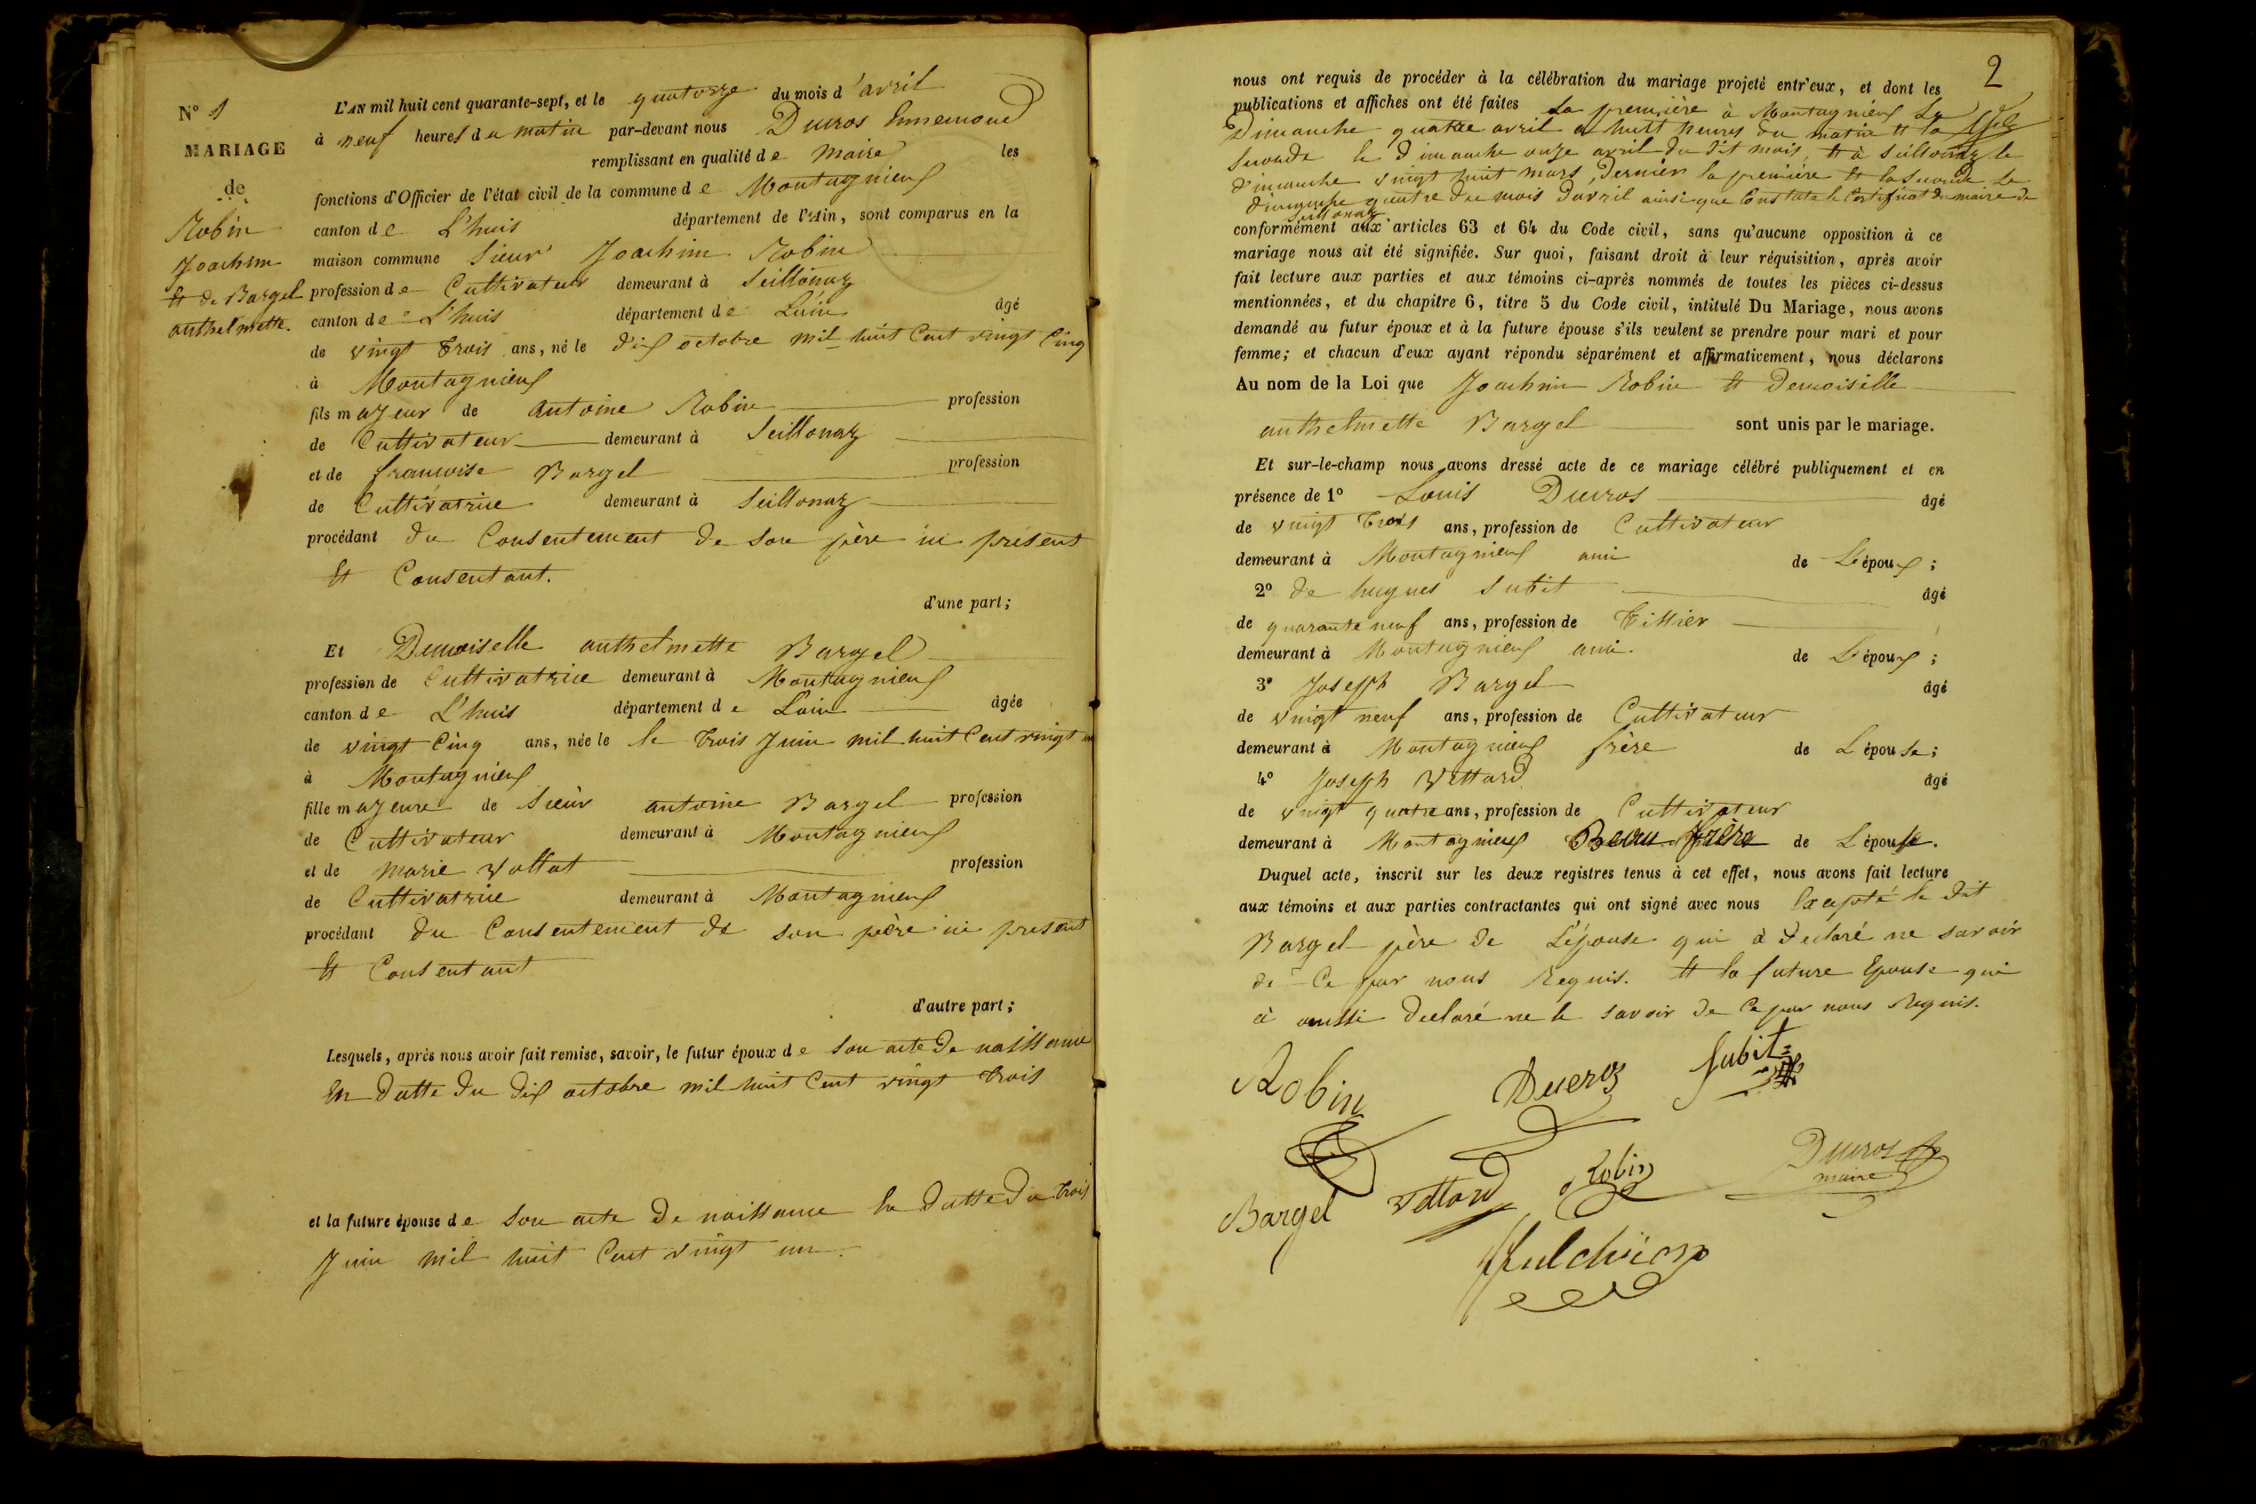 N° 1
MARIAGE
de
Robin
Joachim
et de Bargel
anthelmette.
L'AN mil huit cent quarante-sept, et le quatorze du mois d'avril
à neuf heures du matin par-devant nous Ducros
remplissant en qualité de Maire les
fonctions d'Officier de l'état civil de la commune de Montagnieux
canton de L'huis département de l'Ain, sont comparus en la
maison commune Sieur Joachim Robin
profession de Cultivateur demeurant à Seillonaz
canton de L'huis département de Lain âgé
de vingt trois ans, né le dix octobre mil huit Cent vingt Cinq
à Montagnieux
fils majeur de antoine Robin profession
de Cultivateur demeurant à Seillonaz
et de francoise Bargel profession
de Cultivatrice demeurant à Seillonaz
procédant du Consentement de son père ici présent
et Consentant.
d'une part;
Et Demoiselle anthelmette Bargel
profession de Cultivatrice demeurant à Montagnieux
canton de L'huis département de Lain âgée
de vingt Cinq ans, née le le trois Juin mil huit Cent vingt un
à Montagnieux
fille majeure de Sieur antoine Bargel profession
de Cultivateur demeurant à Montagnieux
et de marie vattat profession
de Cultivatrice demeurant à Montagnieux
procédant du Consentement de son père ici present
et Consentant
d'autre part;
Lesquels, après nous avoir fait remise, savoir, le futur époux de son acte de naissance
En datte du dix octobre mil huit Cent vingt trois
et la future épouse de son acte de naissance En datte du trois
Juin mil huit Cent vingt un.
2
nous ont requis de procéder à la célébration du mariage projeté entr'eux, et dont les
publications et affiches ont été faites La première à Montagnieux Le
Dimanche quatre avril à huit heures du matin et la
seconde le dimanche onze avril du dit mois, et à Seillonaz le
dimanche vingt huit mars dernier la première et la seconde le
dimanche quatre du mois d'avril ainsi que Constate le Certificat du maire de
Seillonaz
conformément aux articles 63 et 64 du Code civil, sans qu'aucune opposition à ce
mariage nous ait été signifiée. Sur quoi, faisant droit à leur réquisition, après avoir
fait lecture aux parties et aux témoins ci-après nommés de toutes les pièces ci-dessus
mentionnées, et du chapitre 6, titre 5 du Code civil, intitulé Du Mariage, nous avons
demandé au futur époux et à la future épouse s'ils veulent se prendre pour mari et pour
femme; et chacun d'eux ayant répondu séparément et affirmativement, nous déclarons
Au nom de la Loi que Joachim Robin et Demoiselle
anthelmette Bargel sont unis par le mariage.
Et sur-le-champ nous avons dressé acte de ce mariage célébré publiquement et en
présence de 1° Louis Ducros âgé
de vingt trois ans, profession de Cultivateur
demeurant à Montagnieux ami de L'époux;
2° de hugues Subit âgé
de quarante neuf ans, profession de
demeurant à Montagnieux ami. de L'époux;
3° Joseph Bargel âgé
de vingt neuf ans, profession de Cultivateur
demeurant à Montagnieux frère de L'épouse;
4° Joseph Vettard âgé
de vingt quatre ans, profession de Cultivateur
demeurant à Montagnieux Beau frère de L'épouse.
Duquel acte, inscrit sur les deux registres tenus à cet effet, nous avons fait lecture
aux témoins et aux parties contractantes qui ont signé avec nous Excepté le dit
Bargel père de L'épouse qui à declaré ne savoir
de Ce par nous Requis. et la future Epouse qui
à aussi declaré ne le savoir de Ce par nous Requis.
Robin Ducros Subit
Bargel vettard Robin Ducros
maire